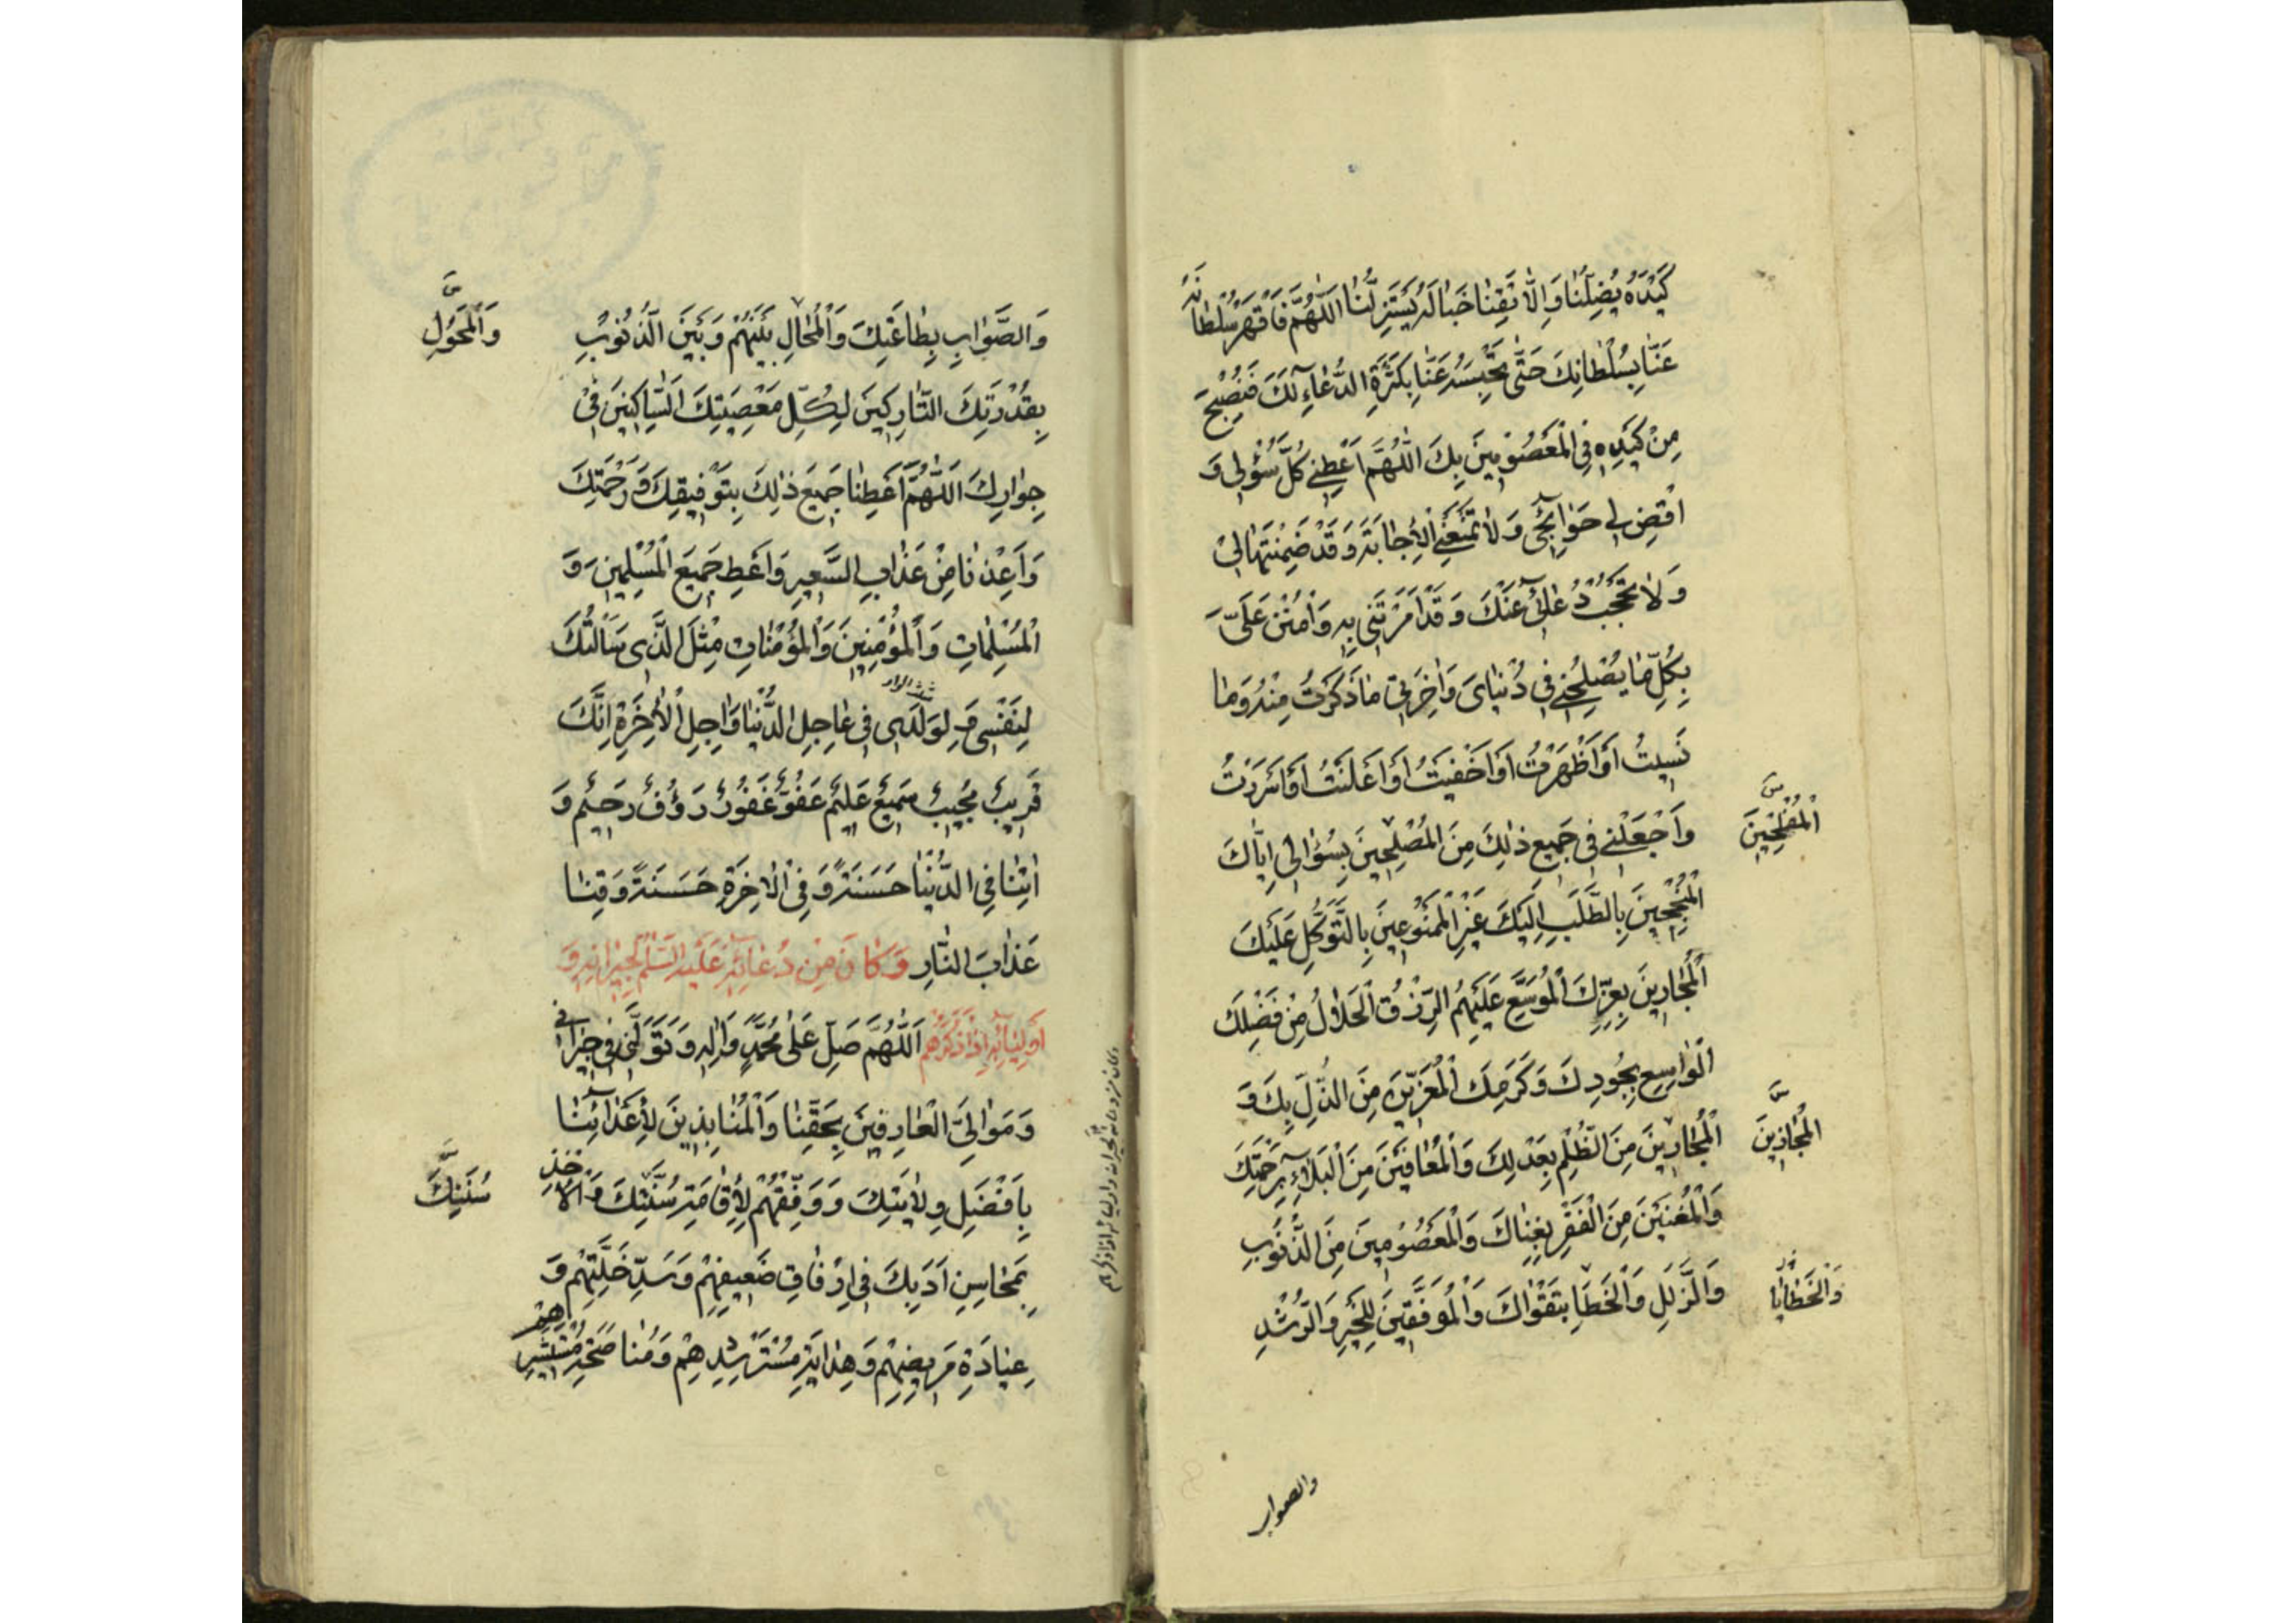 كَيْدَهُ يُضِلَّنَا وَاِلَّا تَقِنَا خَبَالَهُ يَسْتَزِلَّنَا اَللّٰهُمَّ فَاقْهَرْ سُلْطَانَهُ
عَنَّا بِسُلْطَانِكَ حَتّٰى تَحْبِسَهُ عَنَّا بِكَثْرَةِ الدُّعَآءِ لَكَ فَنُصْبِحَ
مِنْ كَيْدِهِ فِى الْمَعْصُومِينَ بِكَ اَللّٰهُمَّ اَعْطِنِى كُلَّ سُؤْلِى وَ
اقْضِ لِى حَوَآئِجِى وَلَا تَمْنَعْنِى الْاِجَابَةَ وَقَدْ ضَمِنْتَهَا لِى
وَلَا تَحْجُبْ دُعَآئِى عَنْكَ وَقَدْ اَمَرْتَنِى بِهِ وَامْنُنْ عَلَىَّ
بِكُلِّ مَا يُصْلِحُنِى فِى دُنْيَاىَ وَاٰخِرَتِى مَا ذَكَرْتُ مِنْهُ وَمَا
نَسِيتُ اَوْ اَظْهَرْتُ اَوْ اَخْفَيْتُ اَوْ اَعْلَنْتُ اَوْ اَسْرَرْتُ
وَاجْعَلْنِى فِى جَمِيعِ ذٰلِكَ مِنَ الْمُصْلِحِينَ بِسُؤَالِى اِيَّاكَ
الْمُفْلِحِينَ
الْمُنْجِحِينَ بِالطَّلَبِ اِلَيْكَ غَيْرِ الْمَمْنُوعِينَ بِالتَّوَكُّلِ عَلَيْكَ
الْمُجَارِينَ بِعِزِّكَ الْمُوَسَّعِ عَلَيْهِمُ الرِّزْقُ الْحَلَالُ مِنْ فَضْلِكَ
الْوَاسِعِ بِجُودِكَ وَكَرَمِكَ الْمُعَزِّينَ مِنَ الذُّلِّ بِكَ وَ
الْمُجَارِينَ مِنَ الظُّلْمِ بِعَدْلِكَ وَالْمُعَافَيْنَ مِنَ الْبَلَآءِ بِرَحْمَتِكَ
الْمُجَازِينَ
وَالْمُغْنَيْنَ مِنَ الْفَقْرِ بِغِنَاكَ وَالْمَعْصُومِينَ مِنَ الذُّنُوبِ
وَالزَّلَلِ وَالْخَطَاِ بِتَقْوَاكَ وَالْمُوَفَّقِينَ لِلْخَيْرِ وَالرُّشْدِ
وَالْخَطَايَا
والصواب
وَالصَّوَابِ بِطَاعَتِكَ وَالْمُحَالِ بَيْنَهُمْ وَبَيْنَ الذُّنُوبِ
وَالْمُحَوَّلِ
بِقُدْرَتِكَ التَّارِكِينَ لِكُلِّ مَعْصِيَتِكَ السَّاكِنِينَ فِى
جِوَارِكَ اَللّٰهُمَّ اَعْطِنَا جَمِيعَ ذٰلِكَ بِتَوْفِيقِكَ وَرَحْمَتِكَ
وَاَعِذْنَا مِنْ عَذَابِ السَّعِيرِ وَاَعْطِ جَمِيعَ الْمُسْلِمِينَ وَ
الْمُسْلِمَاتِ وَالْمُؤْمِنِينَ وَالْمُؤْمِنَاتِ مِثْلَ الَّذِى سَاَلْتُكَ
لِنَفْسِى وَلِوَلَدِى فِى عَاجِلِ الدُّنْيَا وَاٰجِلِ الْاٰخِرَةِ اِنَّكَ
قَرِيبٌ مُجِيبٌ سَمِيعٌ عَلِيمٌ عَفُوٌّ غَفُورٌ رَؤُفٌ رَحِيمٌ وَ
اٰتِنَا فِى الدُّنْيَا حَسَنَةً وَفِى الْاٰخِرَةِ حَسَنَةً وَقِنَا
عَذَابَ النَّارِ وَكَانَ مِنْ دُعَآئِهِ عَلَيْهِ السَّلَمُ لِجِيرَانِهِ وَ
اَوْلِيَآئِهِ اِذَا ذَكَرَهُمْ اَللّٰهُمَّ صَلِّ عَلٰى مُحَمَّدٍ وَاٰلِهِ وَتَوَلَّنِى فِى جِيرَانِى
وَمَوَالِىَّ الْعَارِفِينَ بِحَقِّنَا وَالْمُنَابِذِينَ لِاَعْدَآئِنَا
بِاَفْضَلِ وِلَايَتِكَ وَوَفِّقْهُمْ لِاِقَامَةِ سُنَّتِكَ وَالْاَخْذِ
سُنَنِكَ
بِمَحَاسِنِ اَدَبِكَ فِى اِرْفَاقِ ضَعِيفِهِمْ وَسَدِّ خَلَّتِهِمْ وَ
عِيَادَةِ مَرِيضِهِمْ وَهِدَايَةِ مُسْتَرْشِدِهِمْ وَمُنَاصَحَةِ مُسْتَشِيرِهِمْ
وكان من دعائه لجيرانه واوليائه اذا ذكرهم